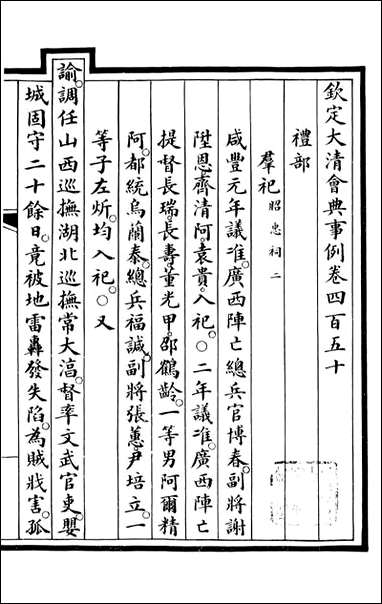 欽定大清會典事例卷四百五十
禮部
羣祀昭忠祠二
咸豐元年議准。廣西陣亡總兵官博春。副將謝
陞恩。齊清阿。袁貴。入祀。○二年議准。廣西陣亡
提督長瑞。長壽。董光甲。邵鶴齡。一等男阿爾精
阿。都統烏蘭泰。總兵福誠。副將張蕙。尹培立。一
等子左炘。均入祀。○又
諭。調任山西巡撫湖北巡撫常大淳。督率文武官吏嬰
城固守二十餘日。竟被地雷轟發失陷。為賊戕害。孤